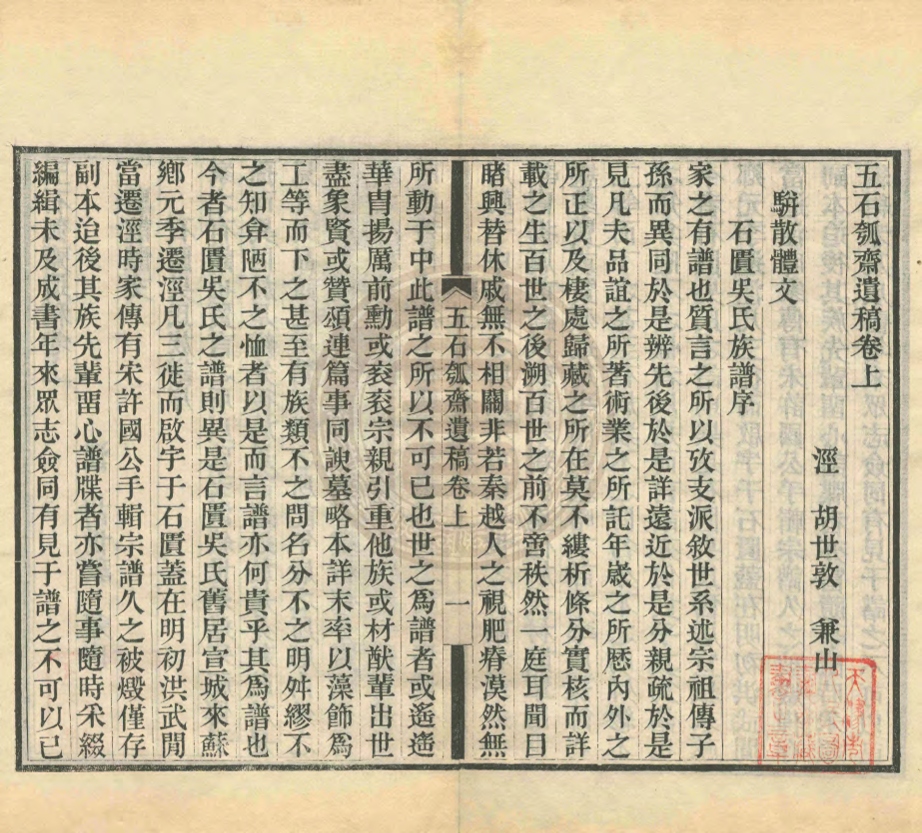 五石瓠齋遺稿卷上
涇 胡世敦 兼山
駢散體文
石匱吳氏族譜序
家之有譜也質言之所以攷支派敘世系述宗祖傳子
孫而異同於是辨先後於是詳遠近於是分親疏於是
見凡夫品誼之所著術業之所託年歲之所歷內外之
所正以及棲處歸藏之所在莫不縷析條分實核而詳
載之生百世之後溯百世之前不啻秩然一庭耳聞目
睹興替休戚無不相關非若秦越人之視肥瘠漠然無
五石瓠齋遺稿卷上 一
所動于中此譜之所以不可已也世之爲譜者或遙遙
華胄揚厲前勳或袞袞宗親引重他族或材猷輩出世
盡象賢或贊頌連篇事同諛墓略本詳末率以藻飾爲
工等而下之甚至有族類不之問名分不之明舛繆不
之知弇陋不之恤者以是而言譜亦何貴乎其爲譜也
今者石匱吳氏之譜則異是石匱吳氏舊居宣城來蘇
鄉元季遷涇凡三徙而啟宇于石匱蓋在明初洪武閒
當遷涇時家傳有宋許國公手輯宗譜久之被燬僅存
副本迨後其族先輩畱心譜牒者亦嘗隨事隨時采綴
編緝未及成書年來眾志僉同有見于譜之不可以已